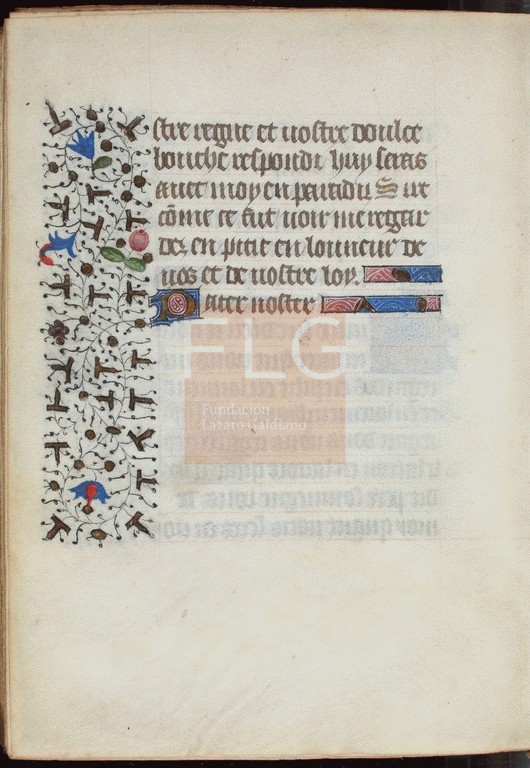 stre regne et vostre doulce
bouche respondi huy seras
avec moy en paradis Sire
cõme ce fut voir me regar
dez en pitie en lonneur de
vos et de vostre loy.
Pater nostre
FLG
Fundación
Lázaro Galdiano